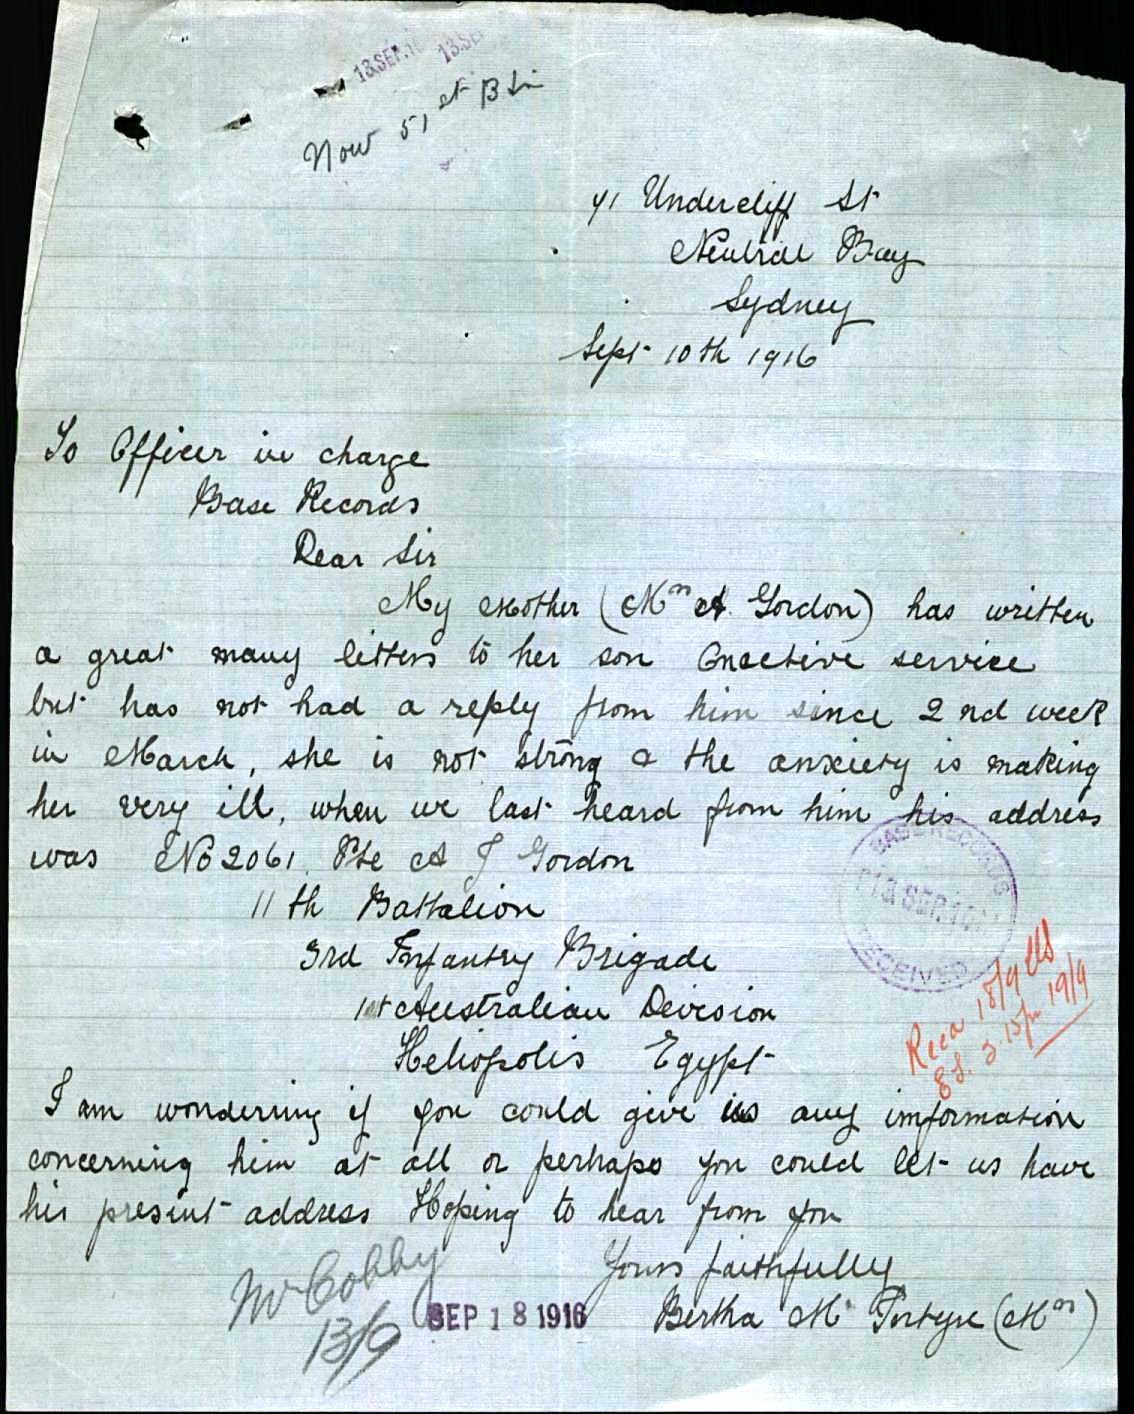 13 SEP. 13 SE
Now 51st Btn
41 Undercliff St
Neutral Bay
Sydney
Sept 10th 1916
To Officer in charge
Base Records
Dear Sir
My Mother (Mrs A. Gordon) has written
a great many letters to her son on active service
but has not had a reply from him since 2nd week
in March, she is not strong & the anxiety is making
her very ill, when we last heard from him his address
was No 2061. Pte A J Gordon
11th Battalion
3rd Infantry Brigade
1st Australian Division
Heliopolis Egypt
BASE RECORDS
13 SEP. 16
RECEIVED
Recd 18/9
19/9
I am wondering if you could give us any imformation
concerning him at all or perhaps you could let us have
his present address Hoping to hear from you
Yours faithfully
Bertha Mc (Mrs)
Mr Cobby
13/9
SEP 18 1916